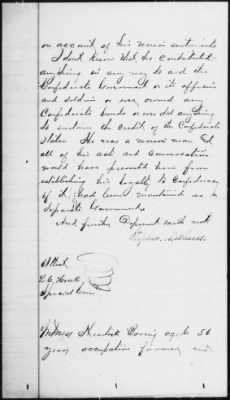 on account of his union sentiments
I dont know that he contributed
anything in any way to aid the
Confederate Government or its officers
and soldiers or ever owned any
Confederate bonds or ever did anything
to sustain the credit of the Confederate
States He was a union man and
all of his acts and conversation
would have prevented him from
establishing his loyalty to Confederacy
if it had been maintained as a
Separate Government
And further Deponent saith not
Attest
Special Com
aged 56
years occupation farming and